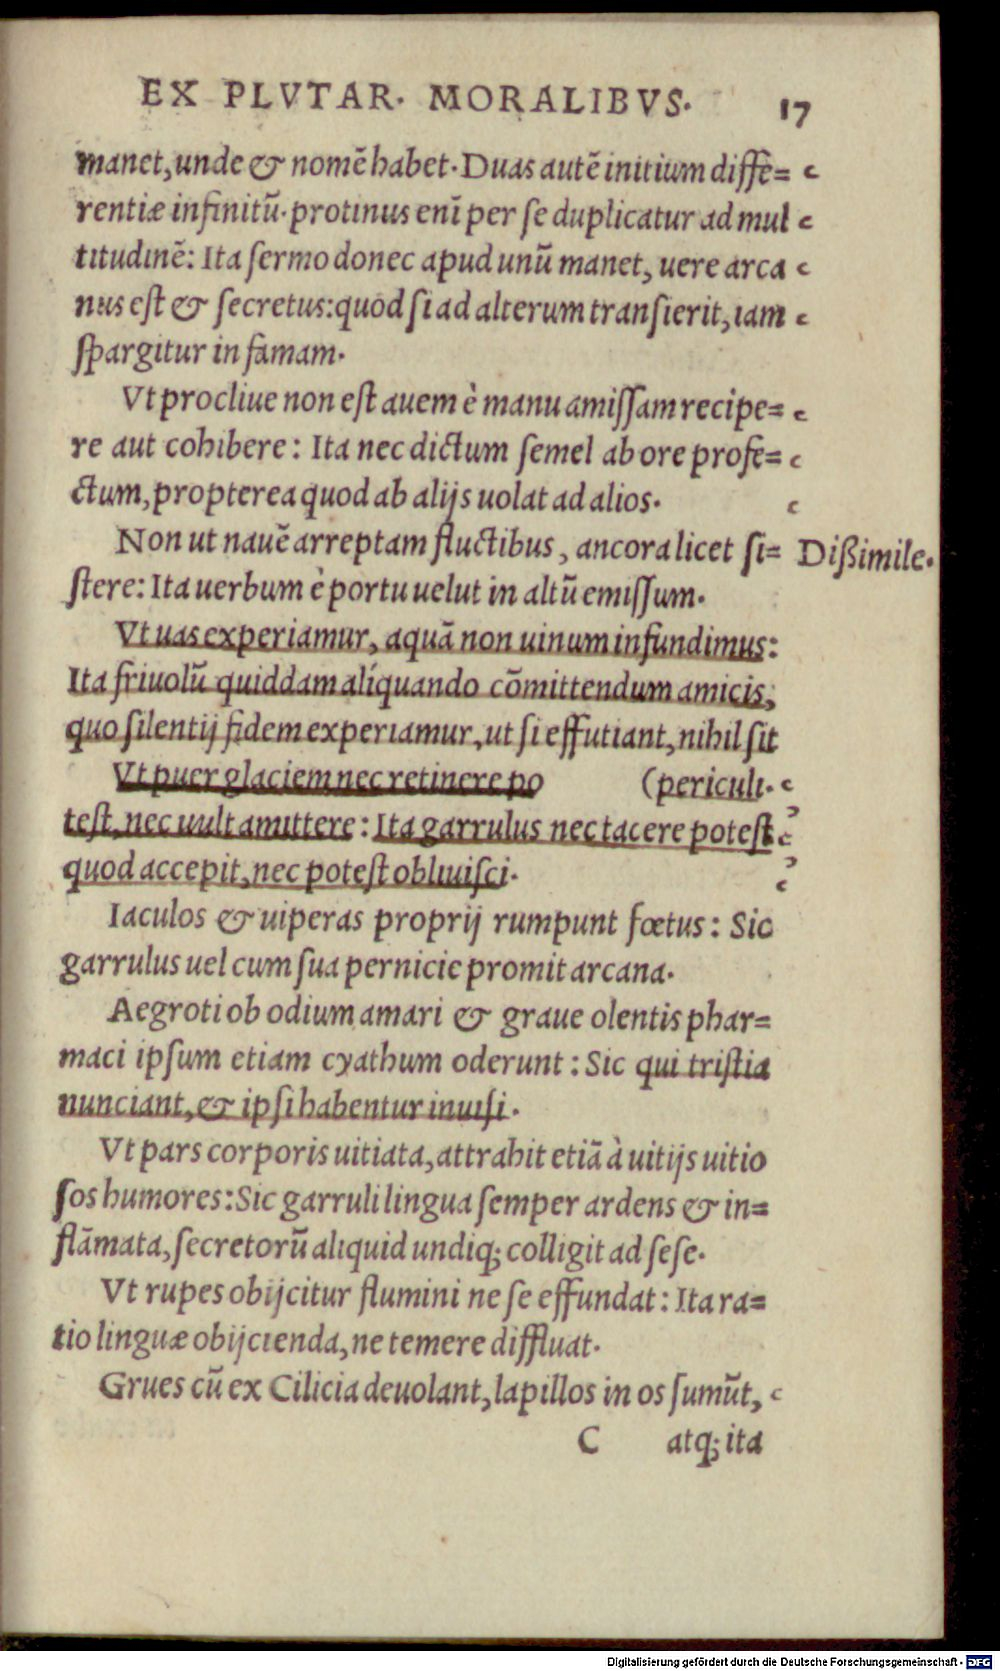 EX PLVTAR. MORALIBVS. 17
manet, unde & nomē habet. Duas autē initium diffe=
rentiæ infinitū. protinus enī per se duplicatur ad mul
titudinē: Ita sermo donec apud unū manet, uere arca
nus est & secretus: quòd si ad alterum transierit, iam
spargitur in famam.
Vt procliue non est auem è manu amissam recipe=
re aut cohibere: Ita nec dictum semel ab ore profe=
ctum, propterea quod ab alijs uolat ad alios.
Non ut nauē arreptam fluctibus, ancora licet si= Dißimile.
stere: Ita uerbum è portu uelut in altū emissum.
Vt uas experiamur, aquā non uinum infundimus:
Ita friuolū quiddam aliquando cōmittendum amicis,
quo silentij fidem experiamur, ut si effutiant, nihil sit
Vt puer glaciem nec retinere po (periculi.
test, nec uult amittere: Ita garrulus nec tacere potest
quod accepit, nec potest obliuisci.
Iaculos & uiperas proprij rumpunt fœtus: Sic
garrulus uel cum sua pernicie promit arcana.
Aegroti ob odium amari & graue olentis phar=
maci ipsum etiam cyathum oderunt: Sic qui tristia
nunciant, & ipsi habentur inuisi.
Vt pars corporis uitiata, attrahit etiā à uitijs uitio
sos humores: Sic garruli lingua semper ardens & in=
flāmata, secretorū aliquid undiq; colligit ad sese.
Vt rupes obijcitur flumini ne se effundat: Ita ra=
tio linguæ obijcienda, ne temere diffluat.
Grues cū ex Cilicia deuolant, lapillos in os sumūt,
C atq; ita
Digitalisierung gefördert durch die Deutsche Forschungsgemeinschaft - DFG